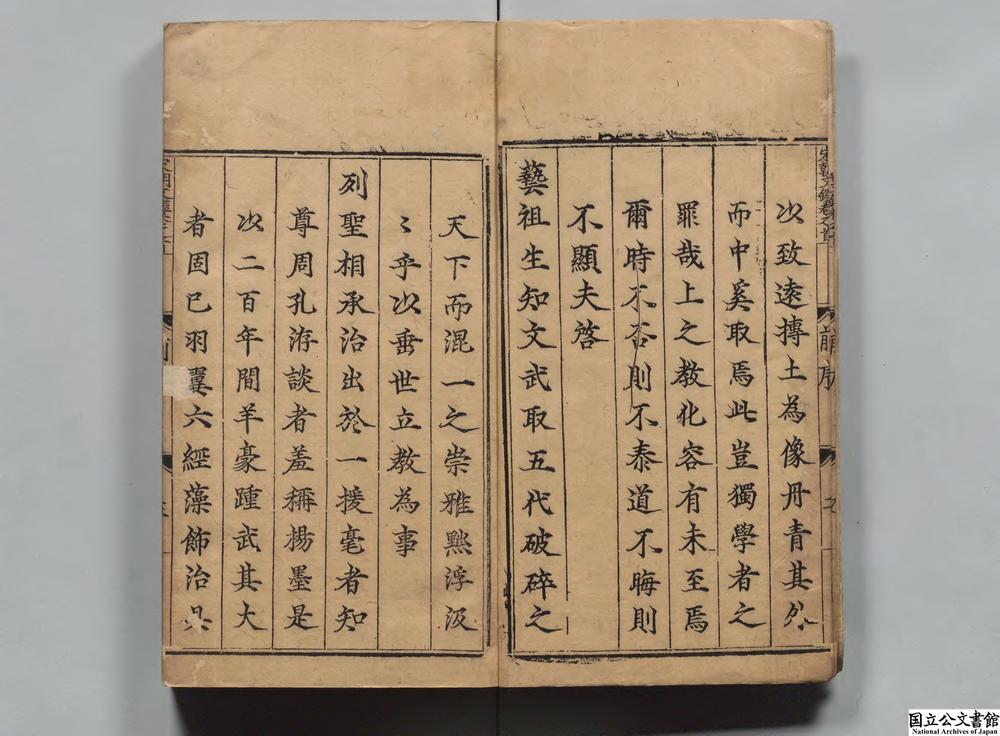 以致遠摶土為像丹青其外
而中奚取焉此豈獨學者之
罪哉上之教化容有未至焉
爾時不否則不泰道不晦則
不顯夫啓
藝祖生知文武取五代破碎之
天下而混一之崇雅黜浮汲
〻乎以垂世立教為事
列聖相承治出於一援毫者知
尊周孔游談者羞稱楊墨是
以二百年間羊豪踵武其大
者固已羽翼六經藻飾治具
国立公文書館
National Archives of Japan